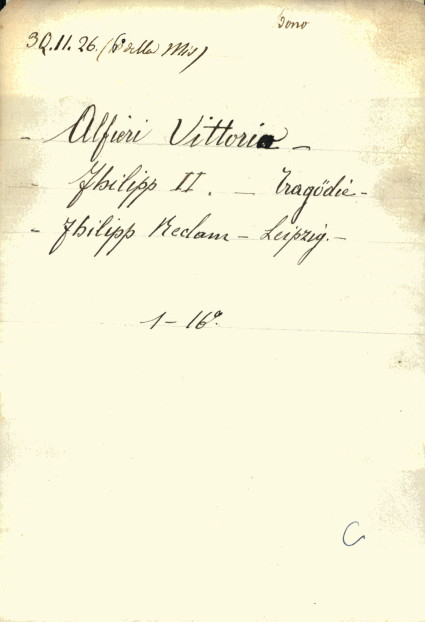 Dono
3Q.11.26. (6ª della Mis)
- Alfieri Vittorio -
- Philipp II. - Tragödie -
- Philipp Reclam - Leipzig. -
1 - 16º.
C